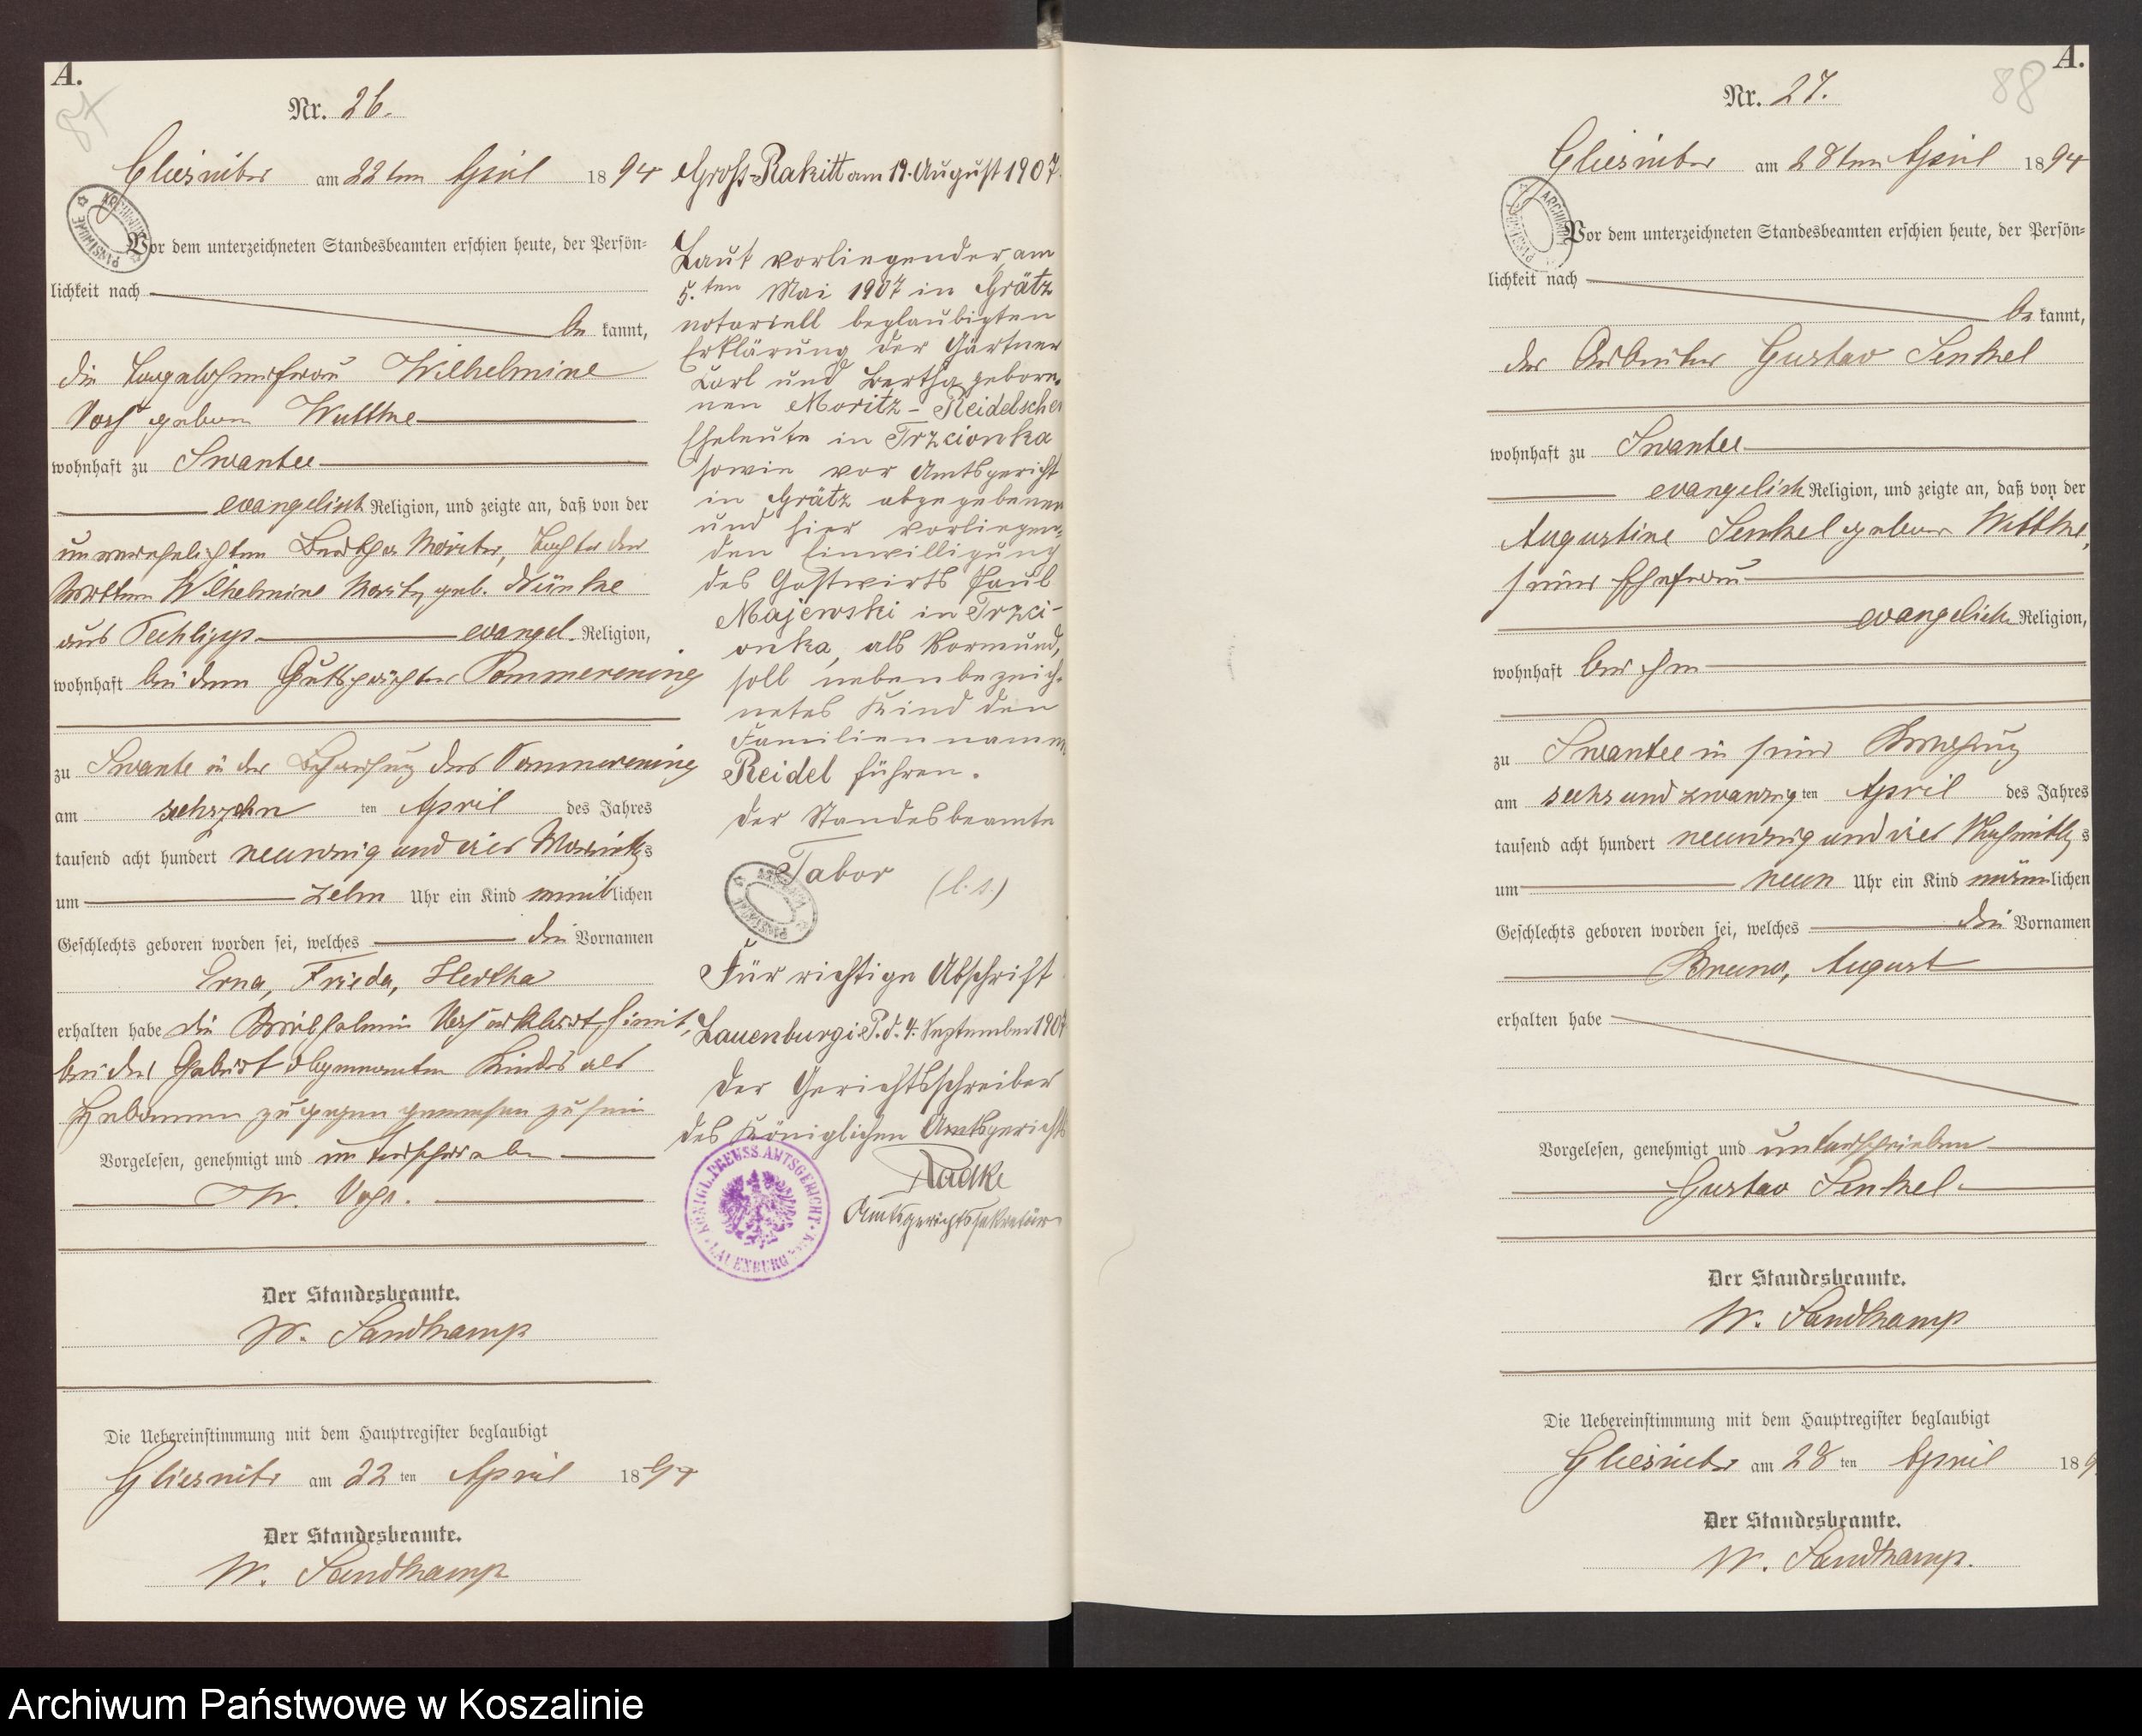 A.
87
Nr. 26.
Gliesnitz am 22ten April 1894
Vor dem unterzeichneten Standesbeamten erschien heute, der Persön=
lichkeit nach
be kannt,
die Tagelöhnerfrau Wilhelmine
Voss geborne Wuttke
wohnhaft zu Swantee
evangelisch Religion, und zeigte an, daß von der
unverehelichten Bertha Moritz, Tochter der
Wilhelmine Moritz geb.
aus Techlipp evangel. Religion,
wohnhaft bei dem Gutspächter Pommerening
zu Swante in der Behausung des Pommerening
am sechszehn ten April des Jahres
tausend acht hundert neunzig und vier Vormittags
um zehn Uhr ein Kind weiblichen
Geschlechts geboren worden sei, welches die Vornamen
Erna, Frieda, Hertha
erhalten habe die Wilhelmine Voss erklärt hiermit,
bei der Geburt obgenannten Kindes als
Hebamme zugegen gewesen zu sein
Vorgelesen, genehmigt und unterschrieben
W. Voss.
Der Standesbeamte.
W. Sandkamp
Die Uebereinstimmung mit dem Hauptregister beglaubigt
Gliesnitz am 22 ten April 1894
Der Standesbeamte.
W. Sandkamp
Groß-Rakitt am 19. August 1907.
Laut vorliegender, am
5.ten Mai 1907 in Grätz
notariell beglaubigten
Erklärung der Gärtner
Karl und Bertha gebore-
nen Moritz-Reidelschen
Eheleute in Trzcionka
sowie vor Amtsgericht
in Grätz abgegebenen
und hier vorliegen-
den Einwilligung
des Gastwirts Paul
Majewski in Trzci-
onka, als Vormund,
soll nebenbezeich-
netes Kind den
Familiennamen
Reidel führen.
Der Standesbeamte
Tabor (l.s.)
Für richtige Abschrift
Lauenburg i.P. d. 4. September 1907
Der Gerichtsschreiber
des Königlichen Amtsgerichts
Radke
Amtsgerichtssekretär
KÖNIGL. PREUSS. AMTSGERICHT
LAUENBURG
A.
88
Nr. 27.
Gliesnitz am 28ten April 1894
Vor dem unterzeichneten Standesbeamten erschien heute, der Persön=
lichkeit nach
be kannt,
der Arbeiter Gustav Senkel
wohnhaft zu Swantee
evangelisch Religion, und zeigte an, daß von der
Augustine Senkel geborne Wittke,
seiner Ehefrau
evangelisch Religion,
wohnhaft bei ihm
zu Swantee in seiner Wohnung
am sechs und zwanzig ten April des Jahres
tausend acht hundert neunzig und vier Nachmittags
um neun Uhr ein Kind männlichen
Geschlechts geboren worden sei, welches die Vornamen
Bruno, August
erhalten habe
Vorgelesen, genehmigt und unterschrieben
Gustav Senkel.
Der Standesbeamte.
W. Sandkamp
Die Uebereinstimmung mit dem Hauptregister beglaubigt
Gliesnitz am 28 ten April 189
Der Standesbeamte.
W. Sandkamp.
Archiwum Państwowe w Koszalinie